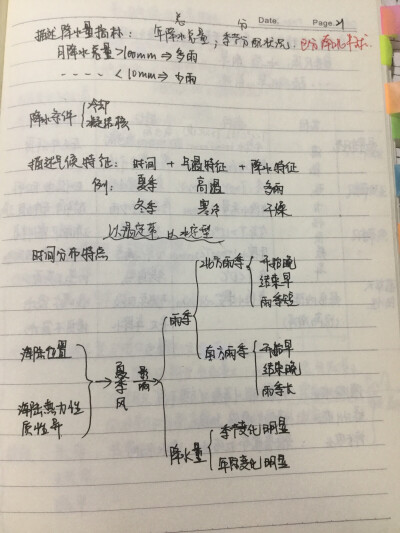 总 分 Date: Page. 21
描述降水量指标: 年降水总量, 季节分配状况,
月降水总量>100mm⇒多雨
- - - - <10mm⇒少雨
降水条件 冷却
凝结核
描述气候特征: 时间 + 气温特征 + 降水特征
例: 夏季 高温 多雨
冬季 寒冷 干燥
以温定带 以水定型
时间分布特点
北方雨季 开始晚
结束早
雨季短
雨季
南方雨季 开始早
结束晚
雨季长
海陆位置
海陆热力性质差异
→夏季风 影响→
降水量 季节变化明显
年际变化明显